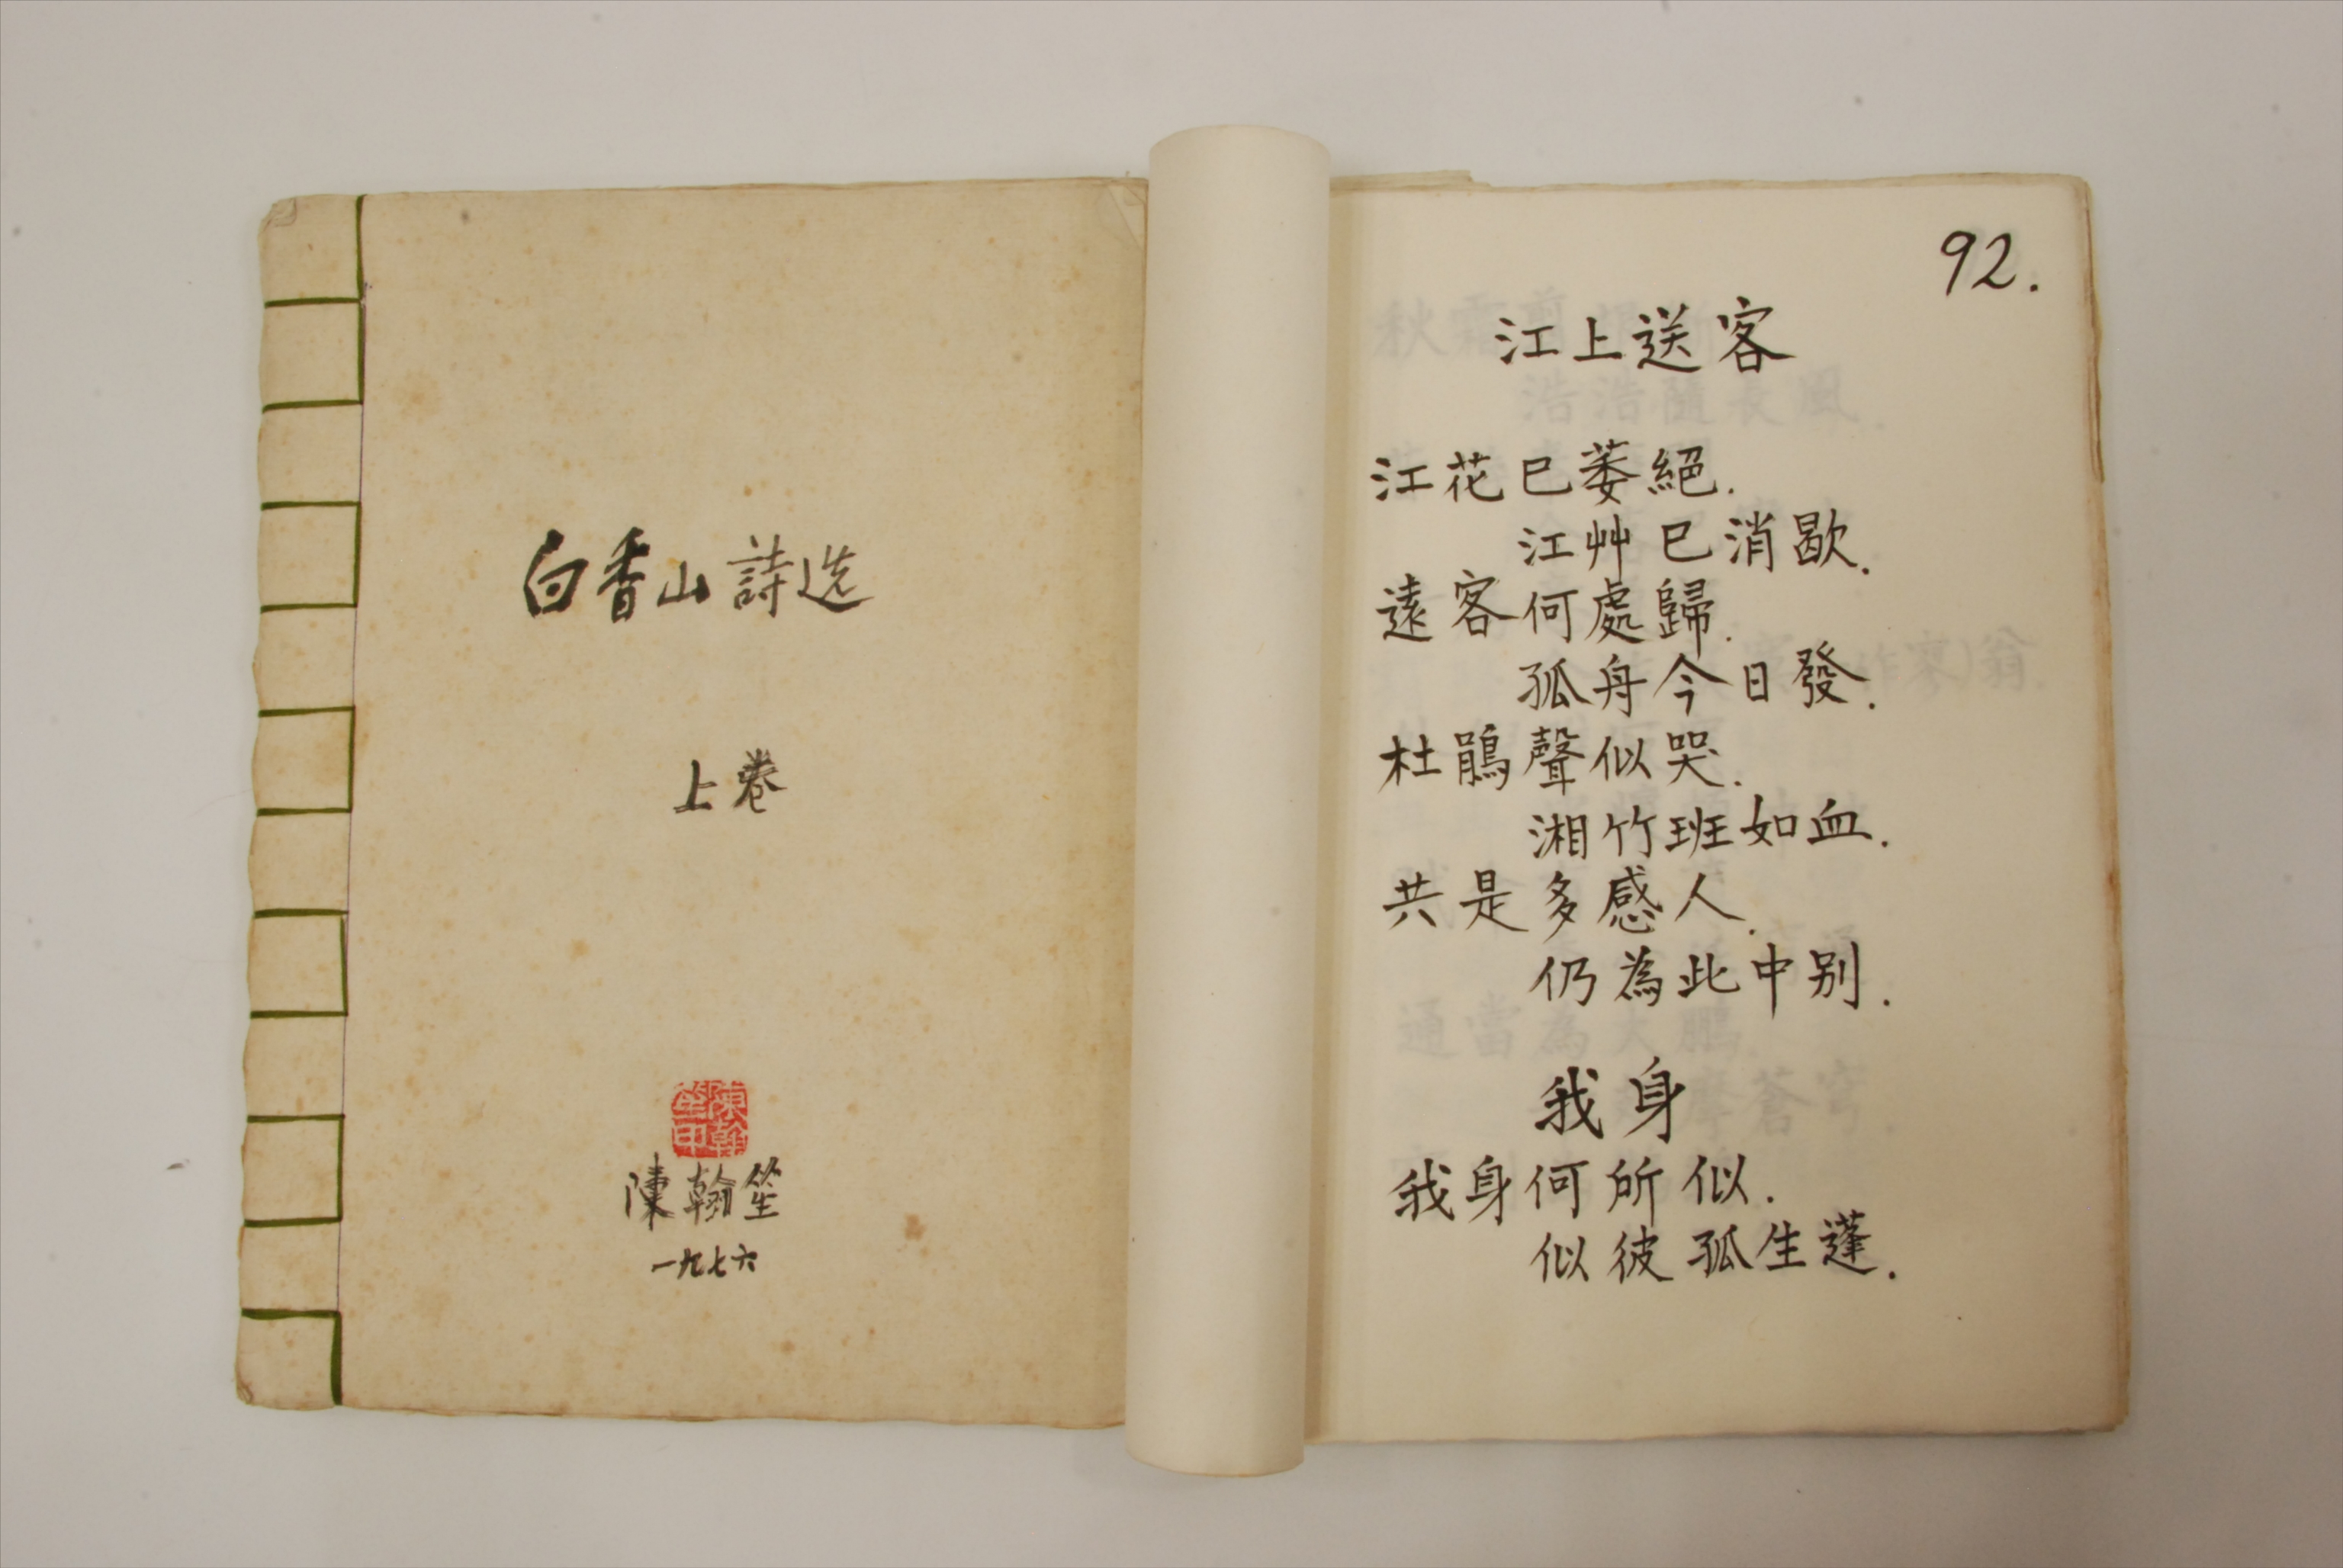 白香山詩选
上卷
陳翰笙印
陳翰笙
一九七六
92.
江上送客
江花已萎絕.
江艸已消歇.
遠客何處歸.
孤舟今日發.
杜鵑聲似哭.
湘竹班如血.
共是多感人.
仍為此中别.
我身
我身何所似.
似彼孤生蓬.